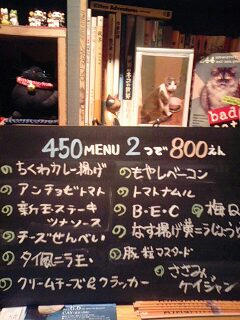 Kitten Adventures
bad
450 MENU 2つで800えん
のちくわカレー揚げ
のアンチョビトマト
の新玉ステーキ
ツナソース
のチーズせんべい
のタイ風ニラ玉
のクリームチーズ&クラッカー
のもやしベーコン
のトマトナムル
のB・E・C
の梅
のなす揚げ
の豚粒マスタード
のささみ
ケイジャン